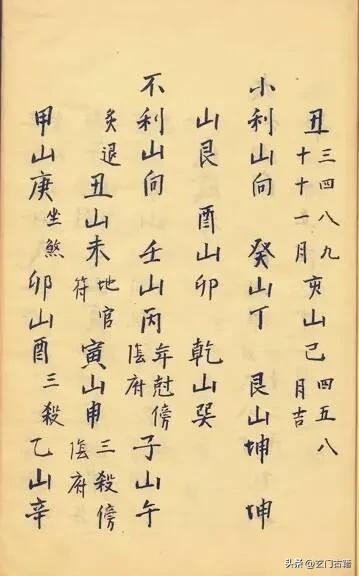 丑 三四八九十十一月 亥山己 四五八月吉
小利山向 癸山丁 艮山坤 坤
山艮 酉山卯 乾山巽
不利山向 壬山丙 年尅傍陰府 子山午
灸退 丑山未 地官符 寅山申 三殺傍陰府
甲山庚 坐煞 卯山酉 三殺 乙山辛
头条 @玄门古籍